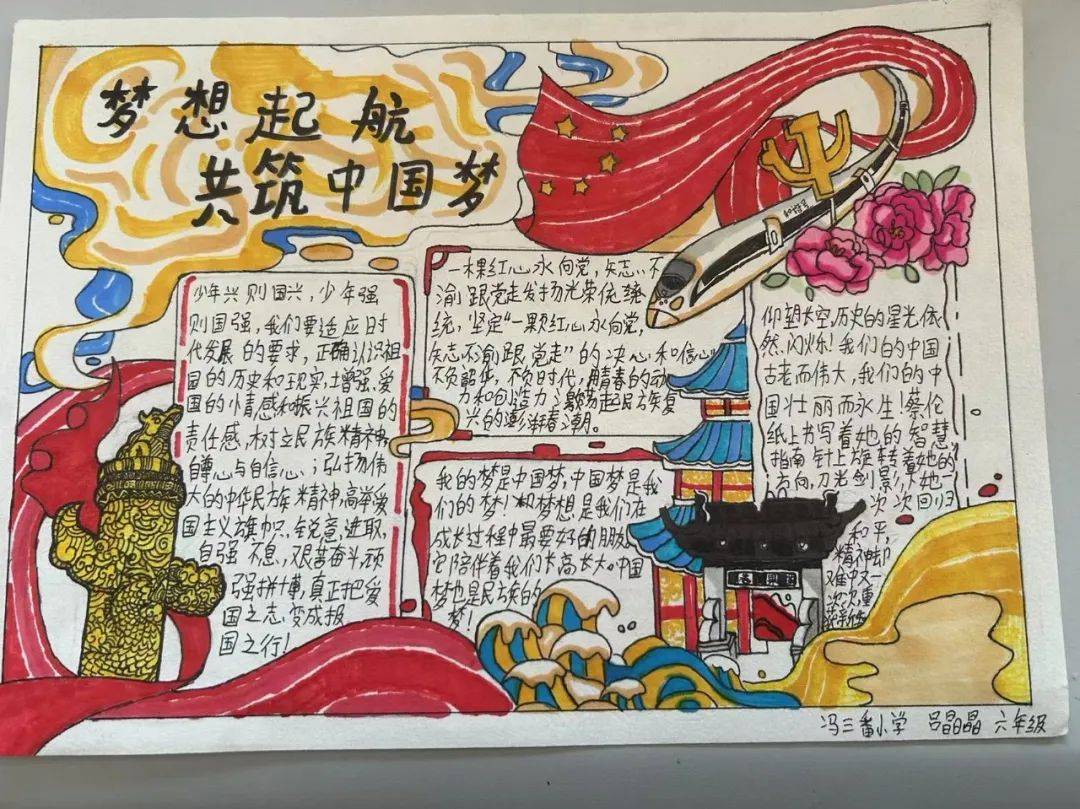 梦想起航
共筑中国梦
和谐号
少年兴则国兴，少年强
则国强，我们要适应时
代发展的要求，正确认识祖
国的历史和现实，增强爱
国的情感和振兴祖国的
责任感，树立民族精神，
自尊心与自信心；弘扬伟
大的中华民族精神，高举爱
国主义旗帜，锐意进取，
自强不息，艰苦奋斗，顽
强拼搏，真正把爱
国之志变成报
国之行！
一棵红心永向党，矢志不
渝跟党走发扬光荣传统
统，坚定“一颗红心永向党，
矢志不渝跟党走”的决心和信心
不负韶华，不负时代，用青春的动
力和创造力激荡起民族复
兴的澎湃春潮。
我的梦是中国梦，中国梦是我
们的梦！梦想是我们在
成长过程中最要好的朋友
它陪伴着我们长高长大。中国
梦也是民族的
梦！
仰望长空，历史的星光依
然闪烁！我们的中国
古老而伟大，我们的中
国壮丽而永生！蔡伦
纸上书写着她的智慧
指南针上旋转着她的
方向，刀光剑影，让她一
次次回归
和平，
精神却
难中又一
次次重
获新生
冯三番小学 吕晶晶 六年级